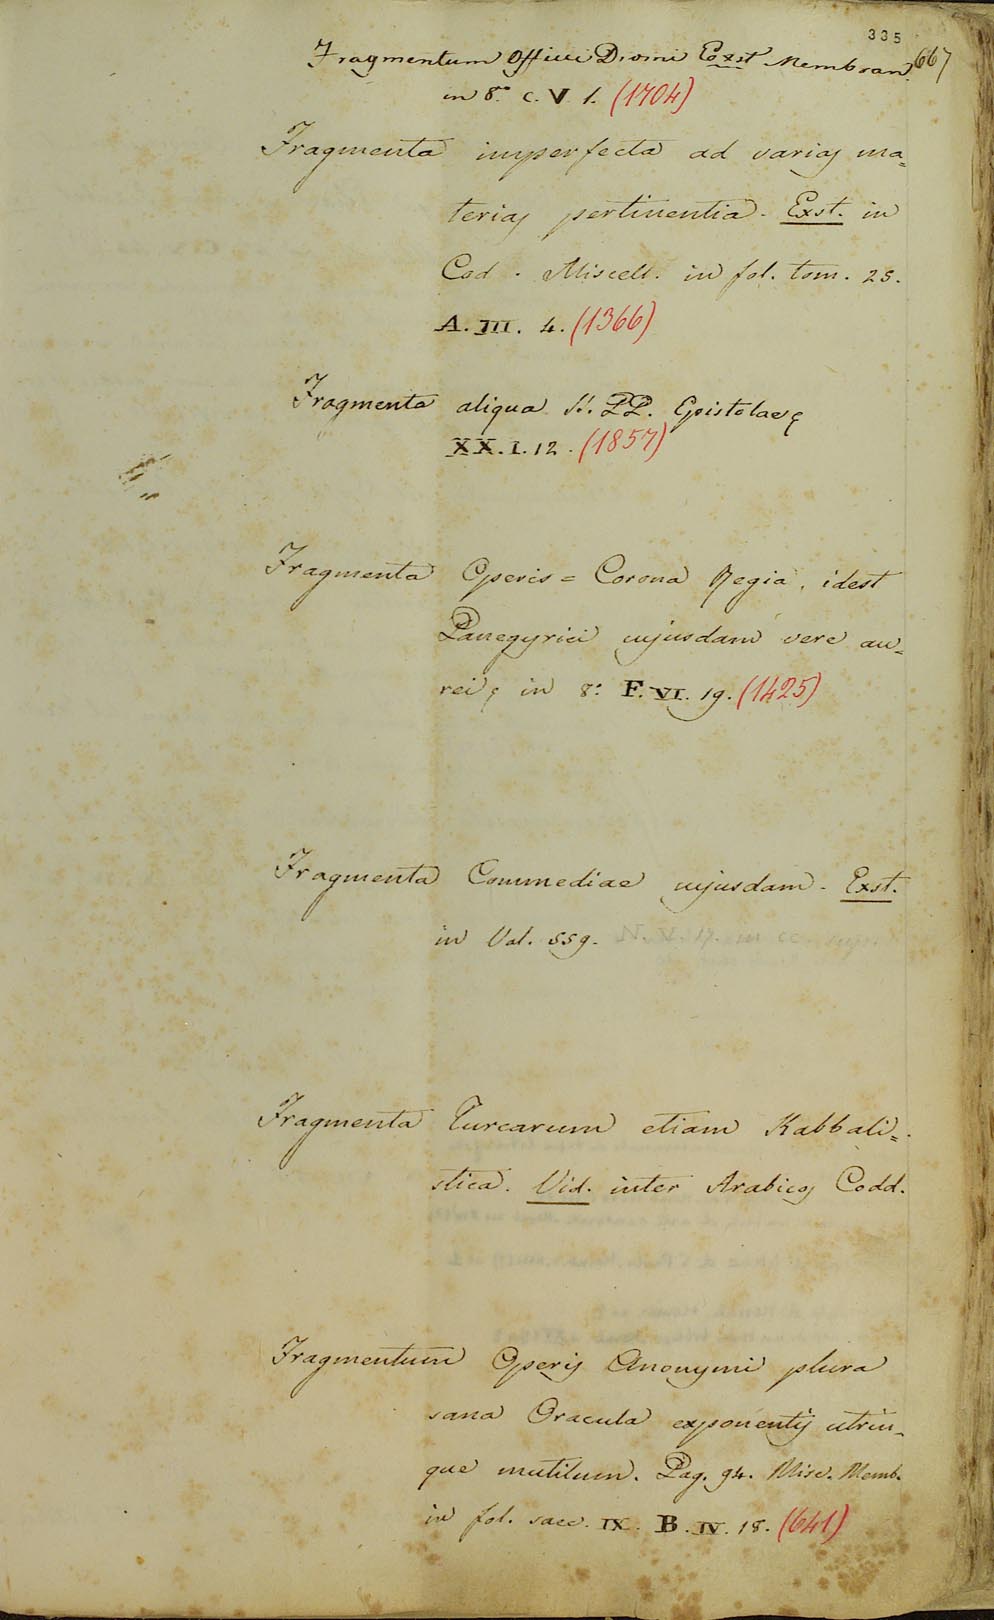 335
667
Fragmentum Officii Divini Exst Membran.
in 8.° C. V. 1. (1704)
Fragmenta imperfecta ad varias ma=
terias pertinentia. Exst. in
Cod. Miscell. in fol. tom. 25.
A. III. 4. (1366)
Fragmenta aliqua SS. PP. Epistolae
XX. I. 12. (1857)
Fragmenta Operis = Corona Regia, idest
Panegyrici cujusdam vere au=
rei, in 8.° F. VI. 19. (1425)
Fragmenta Commediae cujusdam. Exst.
in Val. 559.
Fragmenta Turcarum etiam Kabbali=
stica. Vid. inter Arabicos Codd.
Fragmentum Operis Anonymi plura
sana Oracula exponentis utrin=
que mutilum. Pag. 94. Misc. Memb.
in fol. saec. IX. B. IV. 18. (641)